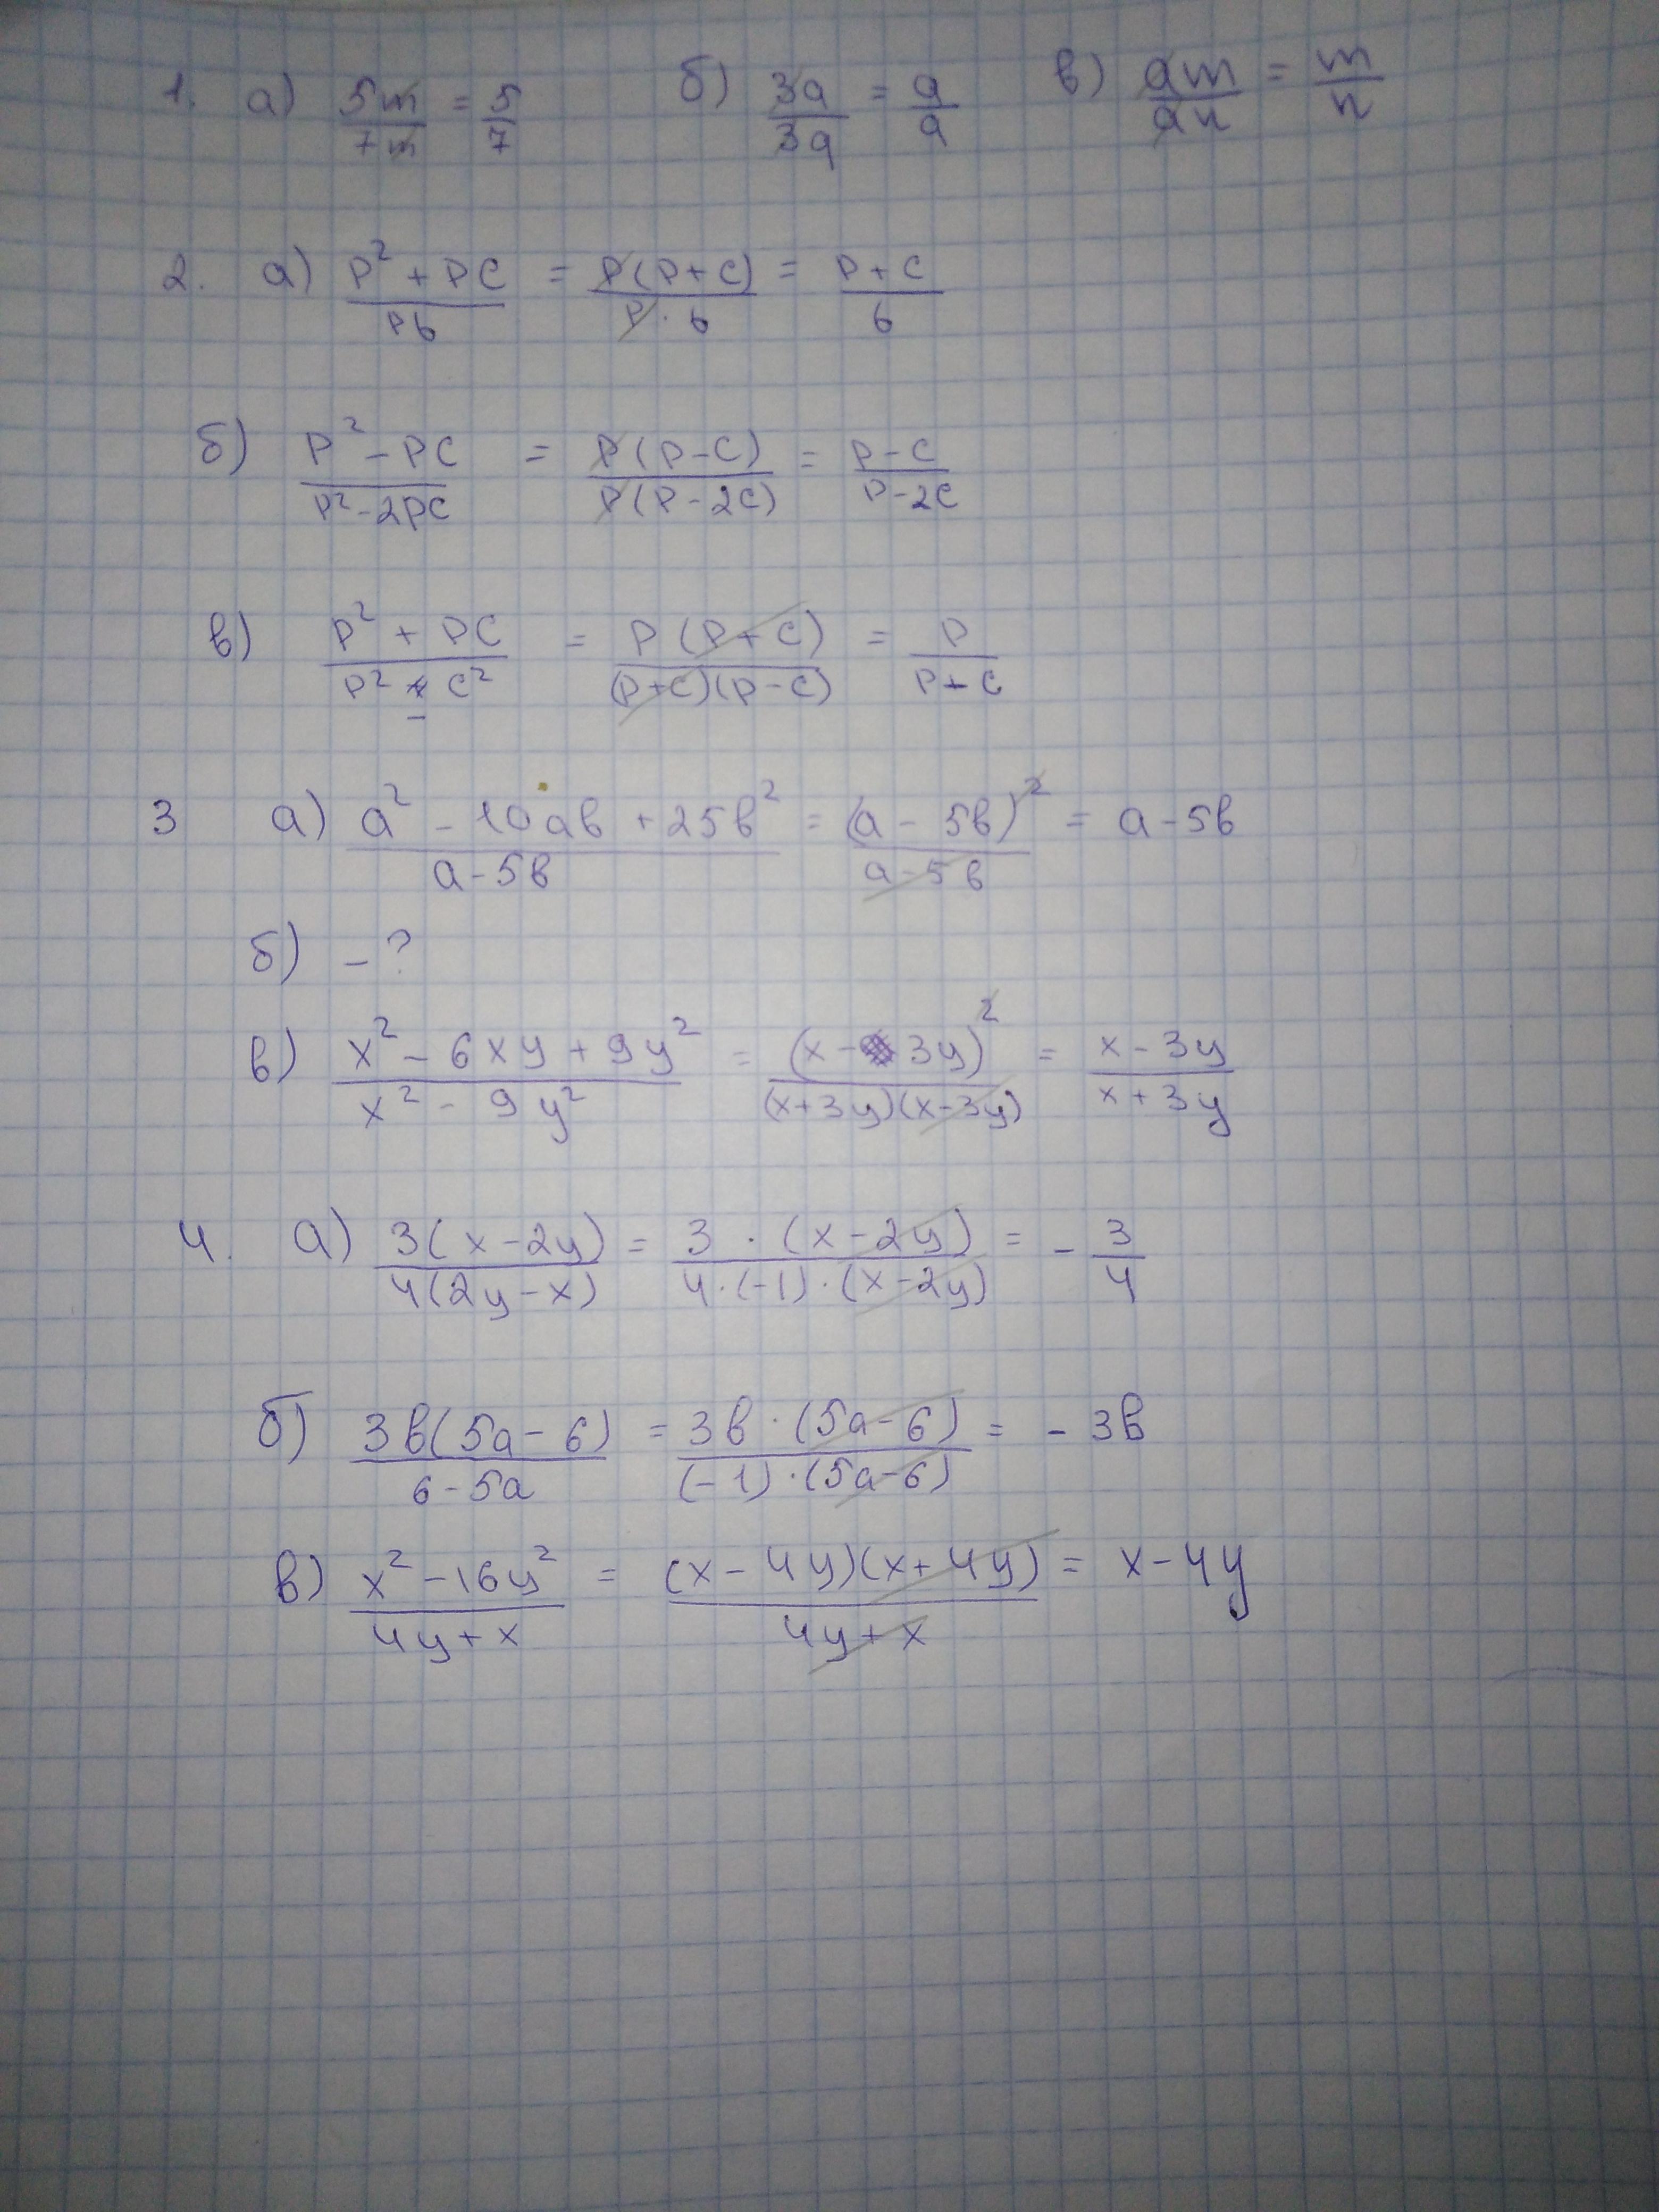 1. а) 5m/7m = 5/7 б) 3a/3a = a/a в) am/an = m/n
2. а) (P² + PC)/(Pb) = P(P+C)/(P·b) = (P+C)/b
б) (P² - PC)/(P² - 2PC) = P(P-C)/(P(P-2C)) = (P-C)/(P-2C)
в) (P² + PC)/(P² - C²) = P(P+C)/((P+C)(P-C)) = P/(P+C)
3 а) (a² - 10ab + 25b²)/(a-5b) = (a - 5b)²/(a-5b) = a-5b
б) - ?
в) (x² - 6xy + 9y²)/(x² - 9y²) = (x - 3y)²/((x+3y)(x-3y)) = (x-3y)/(x+3y)
4. а) 3(x-2y)/(4(2y-x)) = 3·(x-2y)/(4·(-1)·(x-2y)) = -3/4
б) 3b(5a-6)/(6-5a) = 3b·(5a-6)/((-1)·(5a-6)) = -3b
в) (x² - 16y²)/(4y+x) = (x-4y)(x+4y)/(4y+x) = x-4y